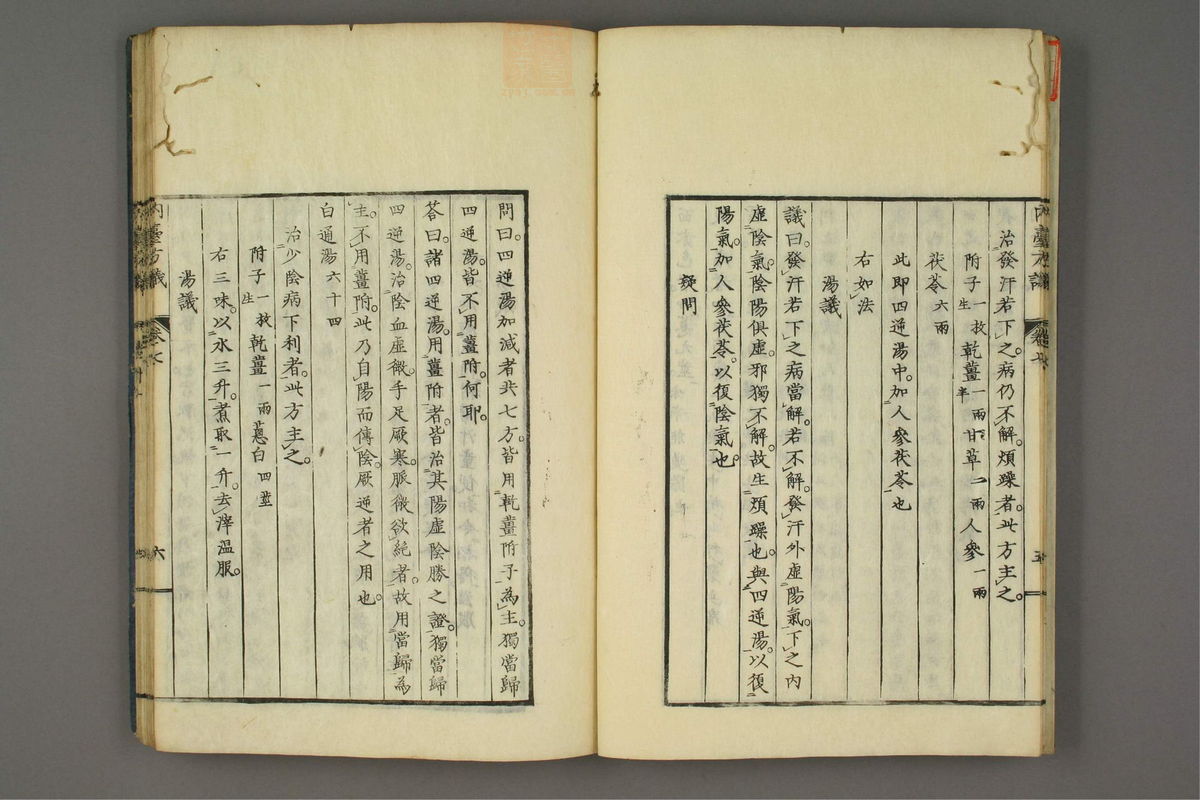 治發汗若下之。病仍不解。煩躁者。此方主之。
附子一枚生 乾薑一兩半 甘草二兩 人參一兩
茯苓六兩
此即四逆湯中加人參茯苓也
右如法
湯議
議曰。發汗若下之病當解。若不解。發汗外虛陽氣。下之內
虛陰氣。陰陽俱虛。邪獨不解。故生煩躁也。與四逆湯。以復
陽氣。加人參茯苓。以復陰氣也。
疑問
問曰。四逆湯加減者共七方。皆用乾薑附子為主。獨當歸
四逆湯。皆不用薑附。何耶。
答曰。諸四逆湯。用薑附者。皆治其陽虛陰勝之證。獨當歸
四逆湯。治陰血虛微。手足厥寒。脈微欲絕者。故用當歸為
主。不用薑附。此乃自陽而傳陰。厥逆者之用也。
白通湯六十四
治少陰病下利者。此方主之。
附子一枚生 乾薑一兩 蔥白四莖
右三味。以水三升。煮取一升。去滓溫服。
湯議
內臺方議
卷七
六